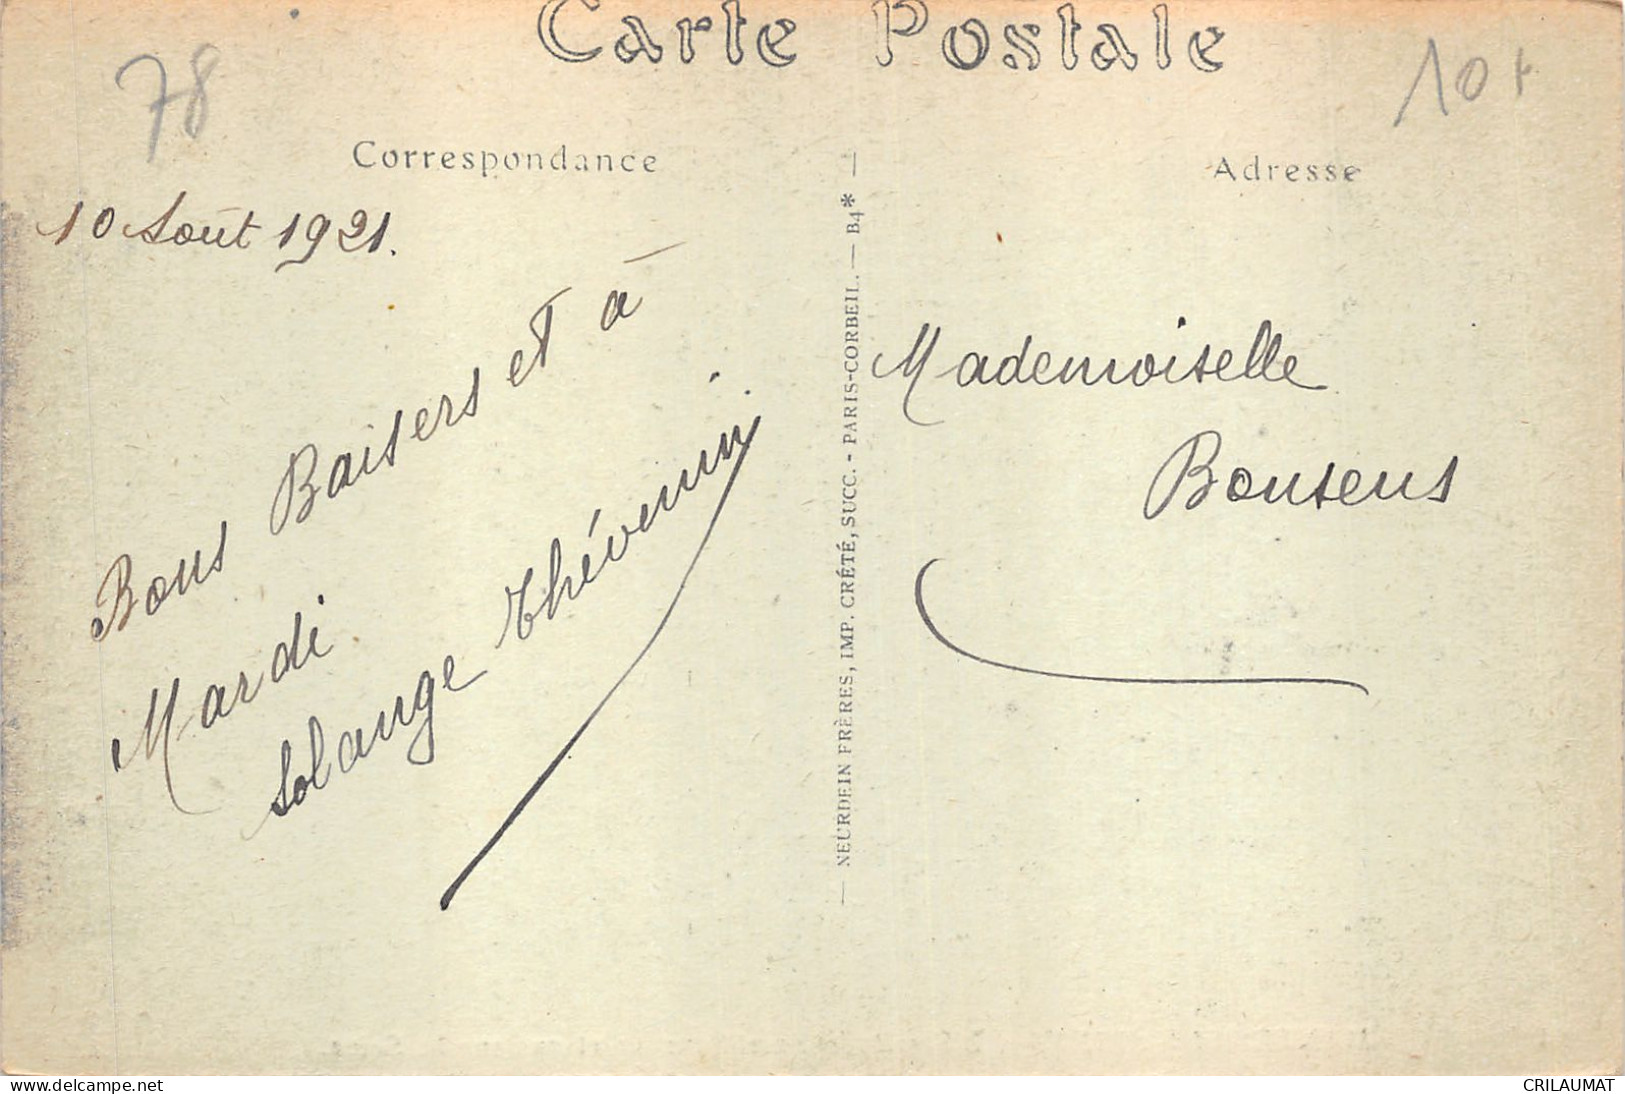 Carte Postale
78
10 F
Correspondance
Adresse
10 Août 1921.
Bons Baisers et à
Mardi
Solange Thévenin
— NEURDEIN FRÈRES, IMP. CRÉTÉ, SUCC. - PARIS-CORBEIL. — B4* —
Mademoiselle
Bonsens
www.delcampe.net
CRILAUMAT